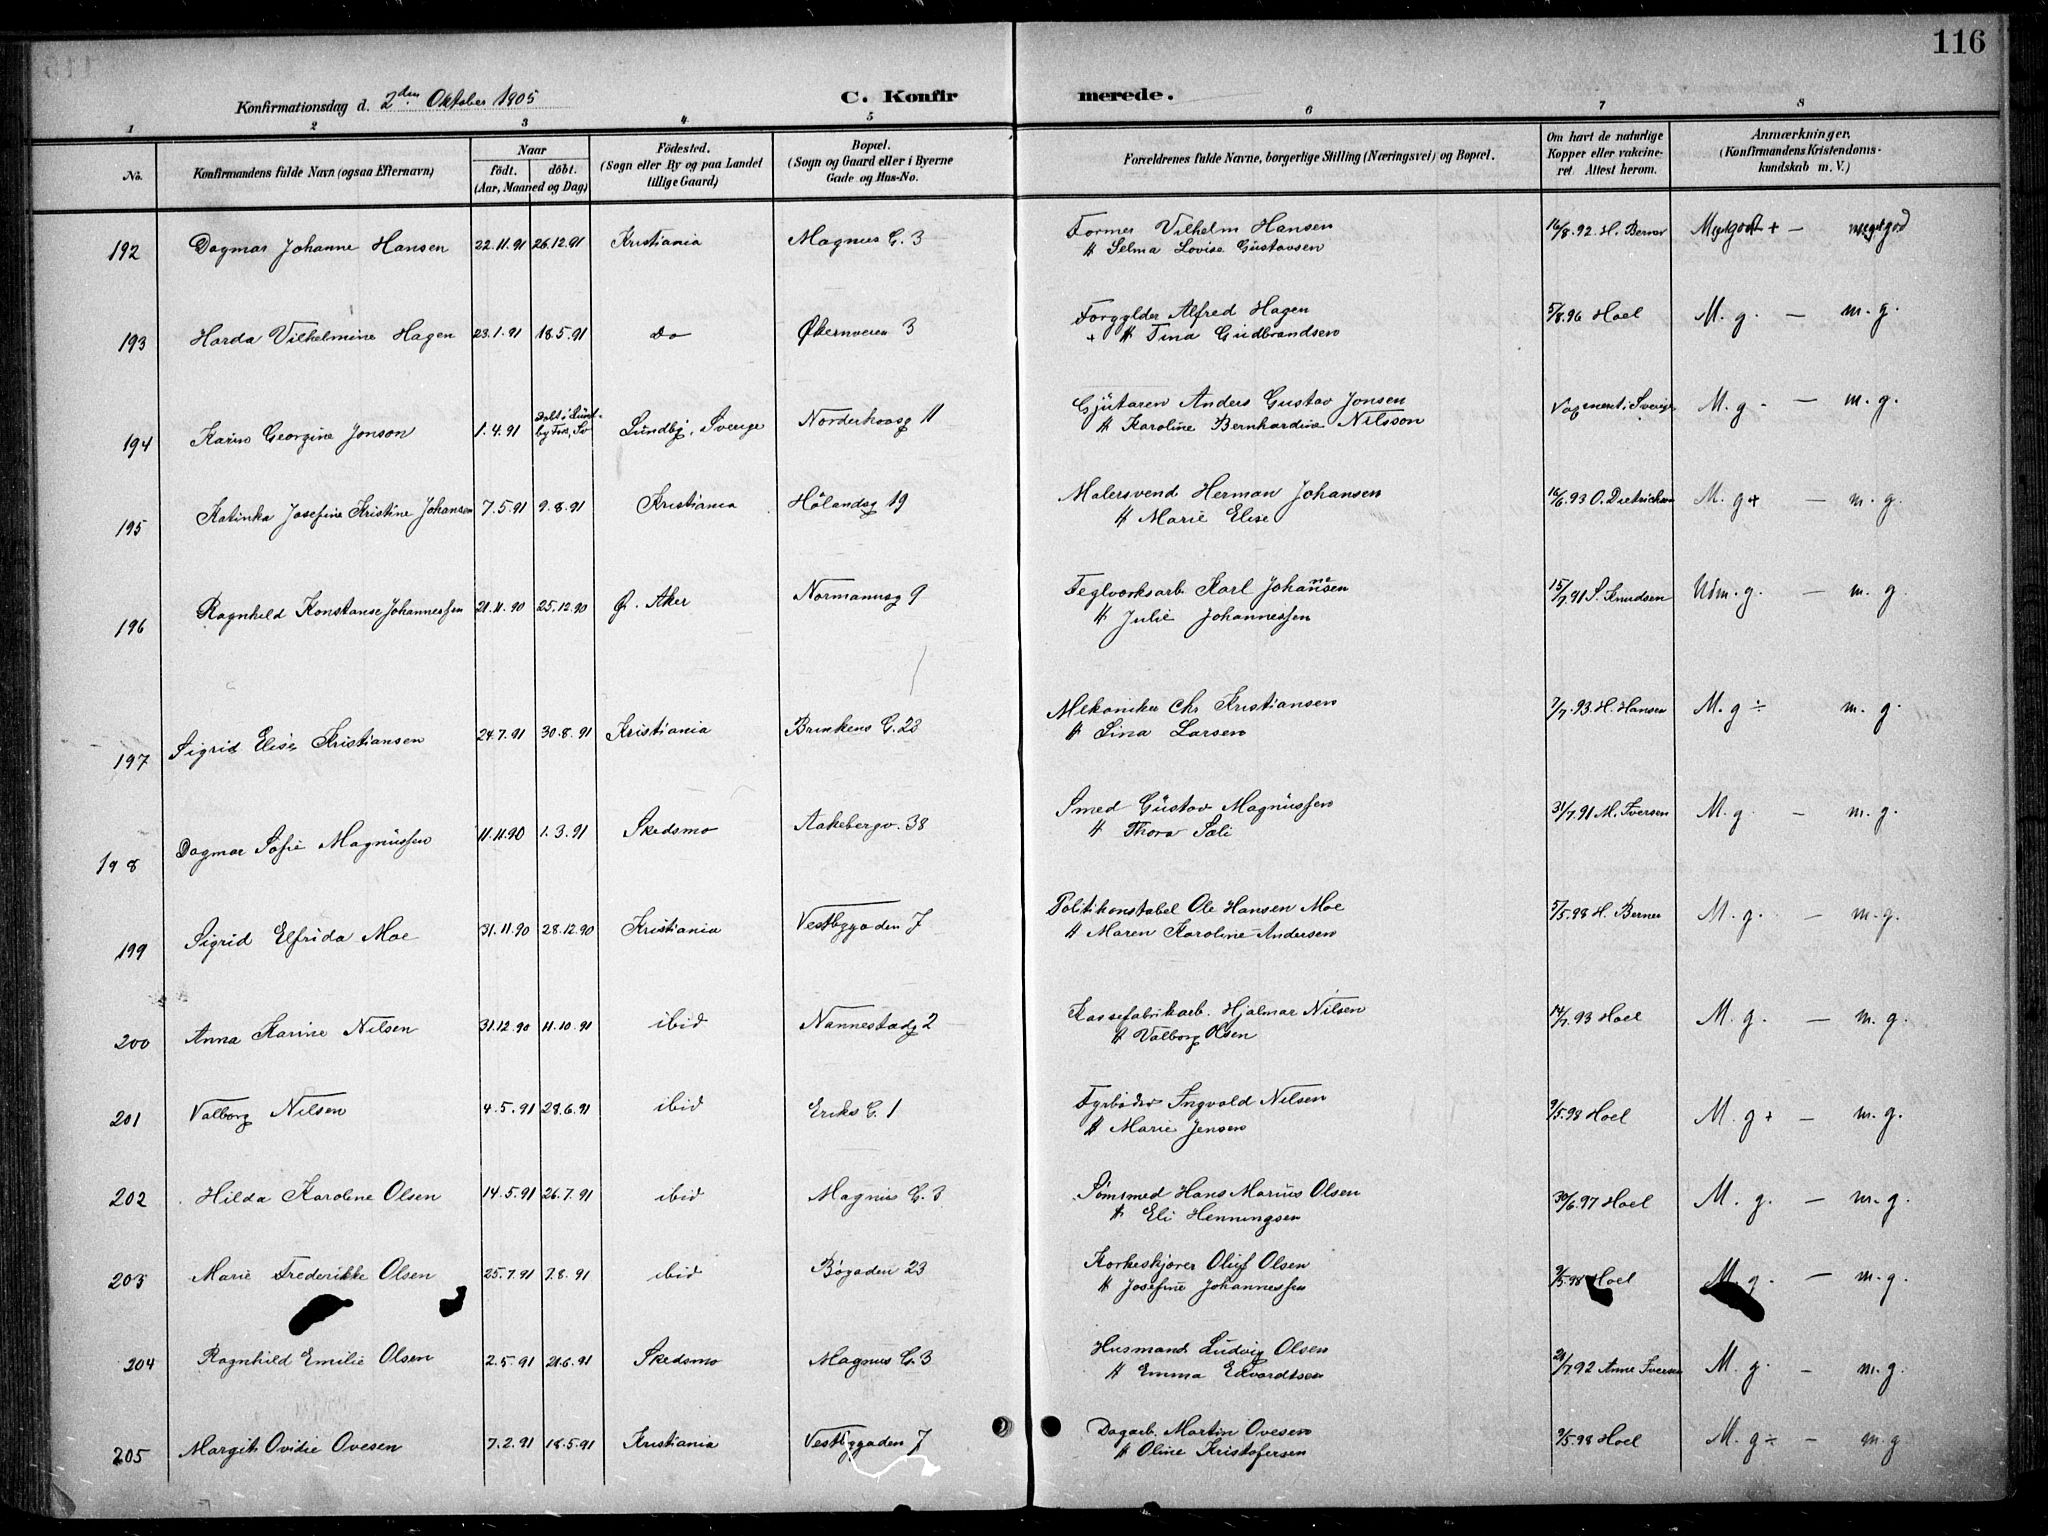 116
Konfirmationsdag d. 2den Oktober 1905 C. Konfirmerede.
1 2 3 4 5 6 7 8
No. Konfirmandens fulde Navn (ogsaa Efternavn) Naar födt. döbt. (Aar, Maaned og Dag) Födested. (Sogn eller By og paa Landet tillige Gaard) Bopæl. (Sogn og Gaard eller i Byerne Gade og Hus-No. Forældrenes fulde Navne, borgerlige Stilling (Næringsvei) og Bopæl. Om havt de naturlige Kopper eller vakcineret. Attest herom. Anmærkninger. (Konfirmandens Kristendomskundskab m. V.)
192 Dagmar Johanne Hansen 22.11.91 26.12.91 Kristiania Magnus G. 3 Former Vilhelm Hansen 16/8.92 H. Berner Megetgodt + — megetgod
H Selma Lovise Gustavsen
193 Harda Vilhelmine Hagen 23.1.91 18.5.91 Do Økernveien 3 Forgylder Alfred Hagen 5/8.96 Hoel M. g. — m. g.
+ H Tina Gudbrandsen
194 Karin Georgine Jonson 1.4.91 Døbt i Lundby Fors. Sv Lundby, Sverige Norderhovsg 11 Gjutaren Anders Gustav Jonsen i Sverige M. g. — m. g.
H Karoline Bernhardina Nilsson
195 Katinka Josefine Kristine Johansen 7.5.91 9.8.91 Kristiania Hölandsg 19 Malersvend Herman Johansen 16/6.93 O. Dietrichson M. g + — m. g.
H Marie Elise
196 Ragnhild Konstanse Johannessen 21.11.90 25.12.90 Ø. Aker Normannsg 9 Teglverksarb. Karl Johannesen 15/7.91 S. Knudsen Udm. g. — m. g.
H Julie Johannessen
197 Sigrid Elise Kristiansen 24.7.91 30.8.91 Kristiania Brinkens G. 28 Mekaniker Chr Kristiansen 7/7.93. H. Hansen M. g ÷ m. g.
H Lina Larsen
198 Dagmar Sofie Magnussen 11.11.90 1.3.91 Skedsmo Aakebergv. 38 Smed Gustav Magnussen 31/7.91 M. Iversen M. g. — m. g.
H Thora Sæli
199 Sigrid Elfrida Moe 31.11.90 28.12.90 Kristiania Vestbygaden 7 Politikonstabel Ole Hansen Moe 5/5.98 H. Berner M. g. — m. g.
H Maren Karoline Andersen
200 Anna Karine Nilsen 31.12.90 11.10.91 ibid Nannestadg 2 Kassefabrikarb. Hjalmar Nilsen 14/7.93 Hoel M. g. — m. g.
H Valborg Olsen
201 Valborg Nilsen 4.5.91 28.6.91 ibid Eriks G. 1 Fyrbøder Ingvald Nilsen 9/5.98 Hoel M. g + — m. g.
H Marie Jensen
202 Hilda Karoline Olsen 14.5.91 26.7.91 ibid Magnus G. 3 Sømsmed Hans Marius Olsen 30/6.97 Hoel M. g. — m. g.
H Eli Henningsen
203 Marie Frederikke Olsen 25.7.91 7.8.91 ibid Bøgaden 23 Korkeskjærer Oluf Olsen 9/5.98 Hoel M. g. — m. g.
H Josefine Johannessen
204 Ragnhild Emilie Olsen 2.5.91 21.6.91 Skedsmo Magnus G. 3 Husmand Ludvig Olsen 21/7.92 Anne Iversen M. g. — m. g.
H Emma Edvardtsen
205 Margith Ovidie Ovesen 7.2.91 18.5.91 Kristiania Vestbygaden 7 Dagarb. Martin Ovesen 9/5.98 Hoel M. g ÷ — m. g
H Oline Kristofersen